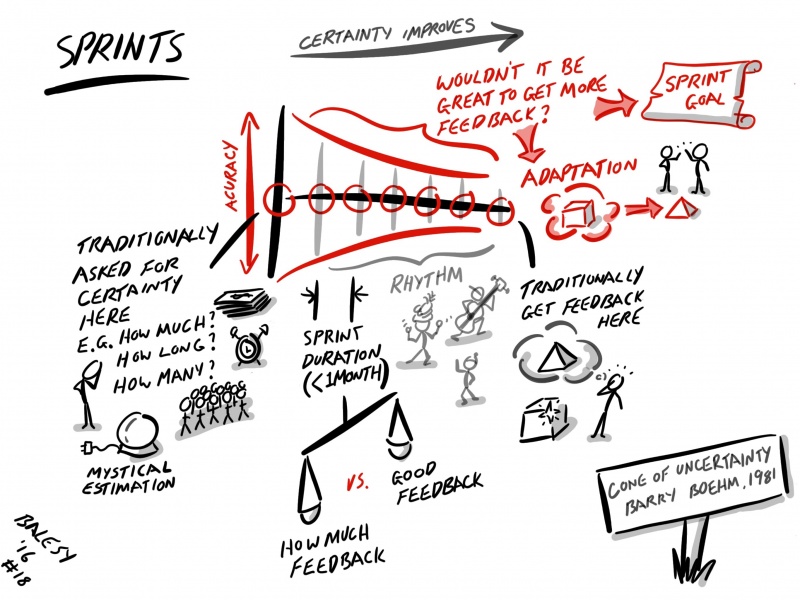 SPRINTS
CERTAINTY IMPROVES
WOULDN'T IT BE
GREAT TO GET MORE
FEEDBACK?
SPRINT
GOAL
ACURACY
ADAPTATION
TRADITIONALLY
ASKED FOR
CERTAINTY
HERE
E.G. HOW MUCH?
HOW LONG?
HOW MANY?
MYSTICAL
ESTIMATION
RHYTHM
SPRINT
DURATION
(<1MONTH)
HOW MUCH
FEEDBACK
VS.
GOOD
FEEDBACK
TRADITIONALLY
GET FEEDBACK
HERE
CONE OF UNCERTAINTY
BARRY BOEHM, 1981
BALESY
'16
#18